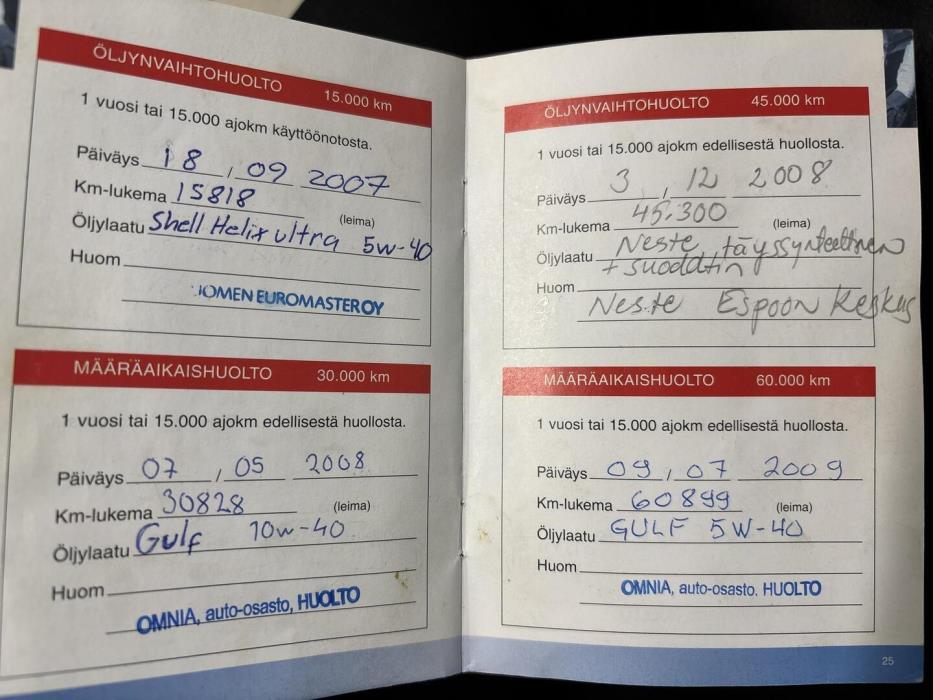 ÖLJYNVAIHTOHUOLTO 15.000 km
1 vuosi tai 15.000 ajokm käyttöönotosta.
Päiväys 18 , 09 2007
Km-lukema 15818 (leima)
Öljylaatu Shell Helix ultra 5w-40
Huom
OMEN EUROMASTER OY
MÄÄRÄAIKAISHUOLTO 30.000 km
1 vuosi tai 15.000 ajokm edellisestä huollosta.
Päiväys 07 , 05 2008
Km-lukema 30828 (leima)
Öljylaatu Gulf 10w-40
Huom
OMNIA, auto-osasto, HUOLTO
ÖLJYNVAIHTOHUOLTO 45.000 km
1 vuosi tai 15.000 ajokm edellisestä huollosta.
Päiväys 3 , 12 2008
Km-lukema 45.300 (leima)
Öljylaatu Neste täyssynteettinen
+ suodatin
Huom
Neste Espoon Keskus
MÄÄRÄAIKAISHUOLTO 60.000 km
1 vuosi tai 15.000 ajokm edellisestä huollosta.
Päiväys 09 , 07 2009
Km-lukema 60899 (leima)
Öljylaatu GULF 5W-40
Huom
OMNIA, auto-osasto. HUOLTO
25